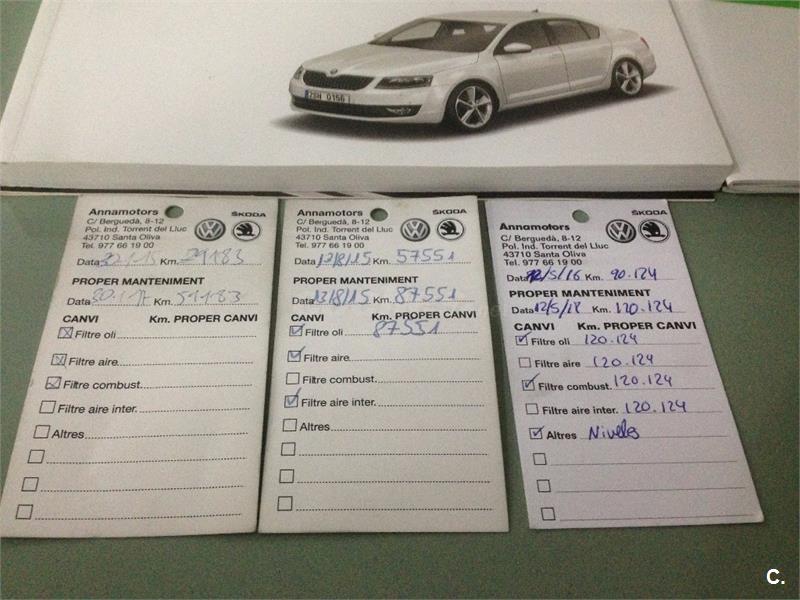 2SH 0156
Annamotors ŠKODA
C/ Berguedà, 8-12
Pol. Ind. Torrent del Lluc
43710 Santa Oliva
Tel. 977 66 19 00
Data Km. 29183
PROPER MANTENIMENT
Data Km. 59183
CANVI Km. PROPER CANVI
Filtre oli
Filtre aire
Filtre combust.
Filtre aire inter.
Altres
Annamotors ŠKODA
C/ Berguedà, 8-12
Pol. Ind. Torrent del Lluc
43710 Santa Oliva
Tel. 977 66 19 00
Data 13/8/15 Km. 57551
PROPER MANTENIMENT
Data 13/8/15 Km. 87551
CANVI Km. PROPER CANVI
Filtre oli 87551
Filtre aire
Filtre combust.
Filtre aire inter.
Altres
Annamotors ŠKODA
C/ Berguedà, 8-12
Pol. Ind. Torrent del Lluc
43710 Santa Oliva
Tel. 977 66 19 00
Data 12/5/16 Km. 90.124
PROPER MANTENIMENT
Data 12/5/18 Km. 120.124
CANVI Km. PROPER CANVI
Filtre oli 120.124
Filtre aire 120.124
Filtre combust. 120.124
Filtre aire inter. 120.124
Altres Niveles
C.